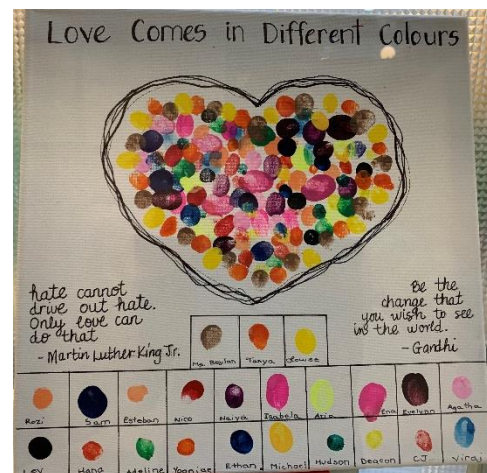 Love Comes in Different Colours
hate cannot
drive out hate.
Only love can
do that
- Martin Luther King Jr.
Be the
change that
you wish to see
in the world.
- Gandhi
Ms. Tanya Louise
Rozi Sam Esteban Nico Naiya Isabela Aria Ena Evelynn Agatha
Lev Hana Adeline Ethan Michael Hudson Deacon CJ Viraj